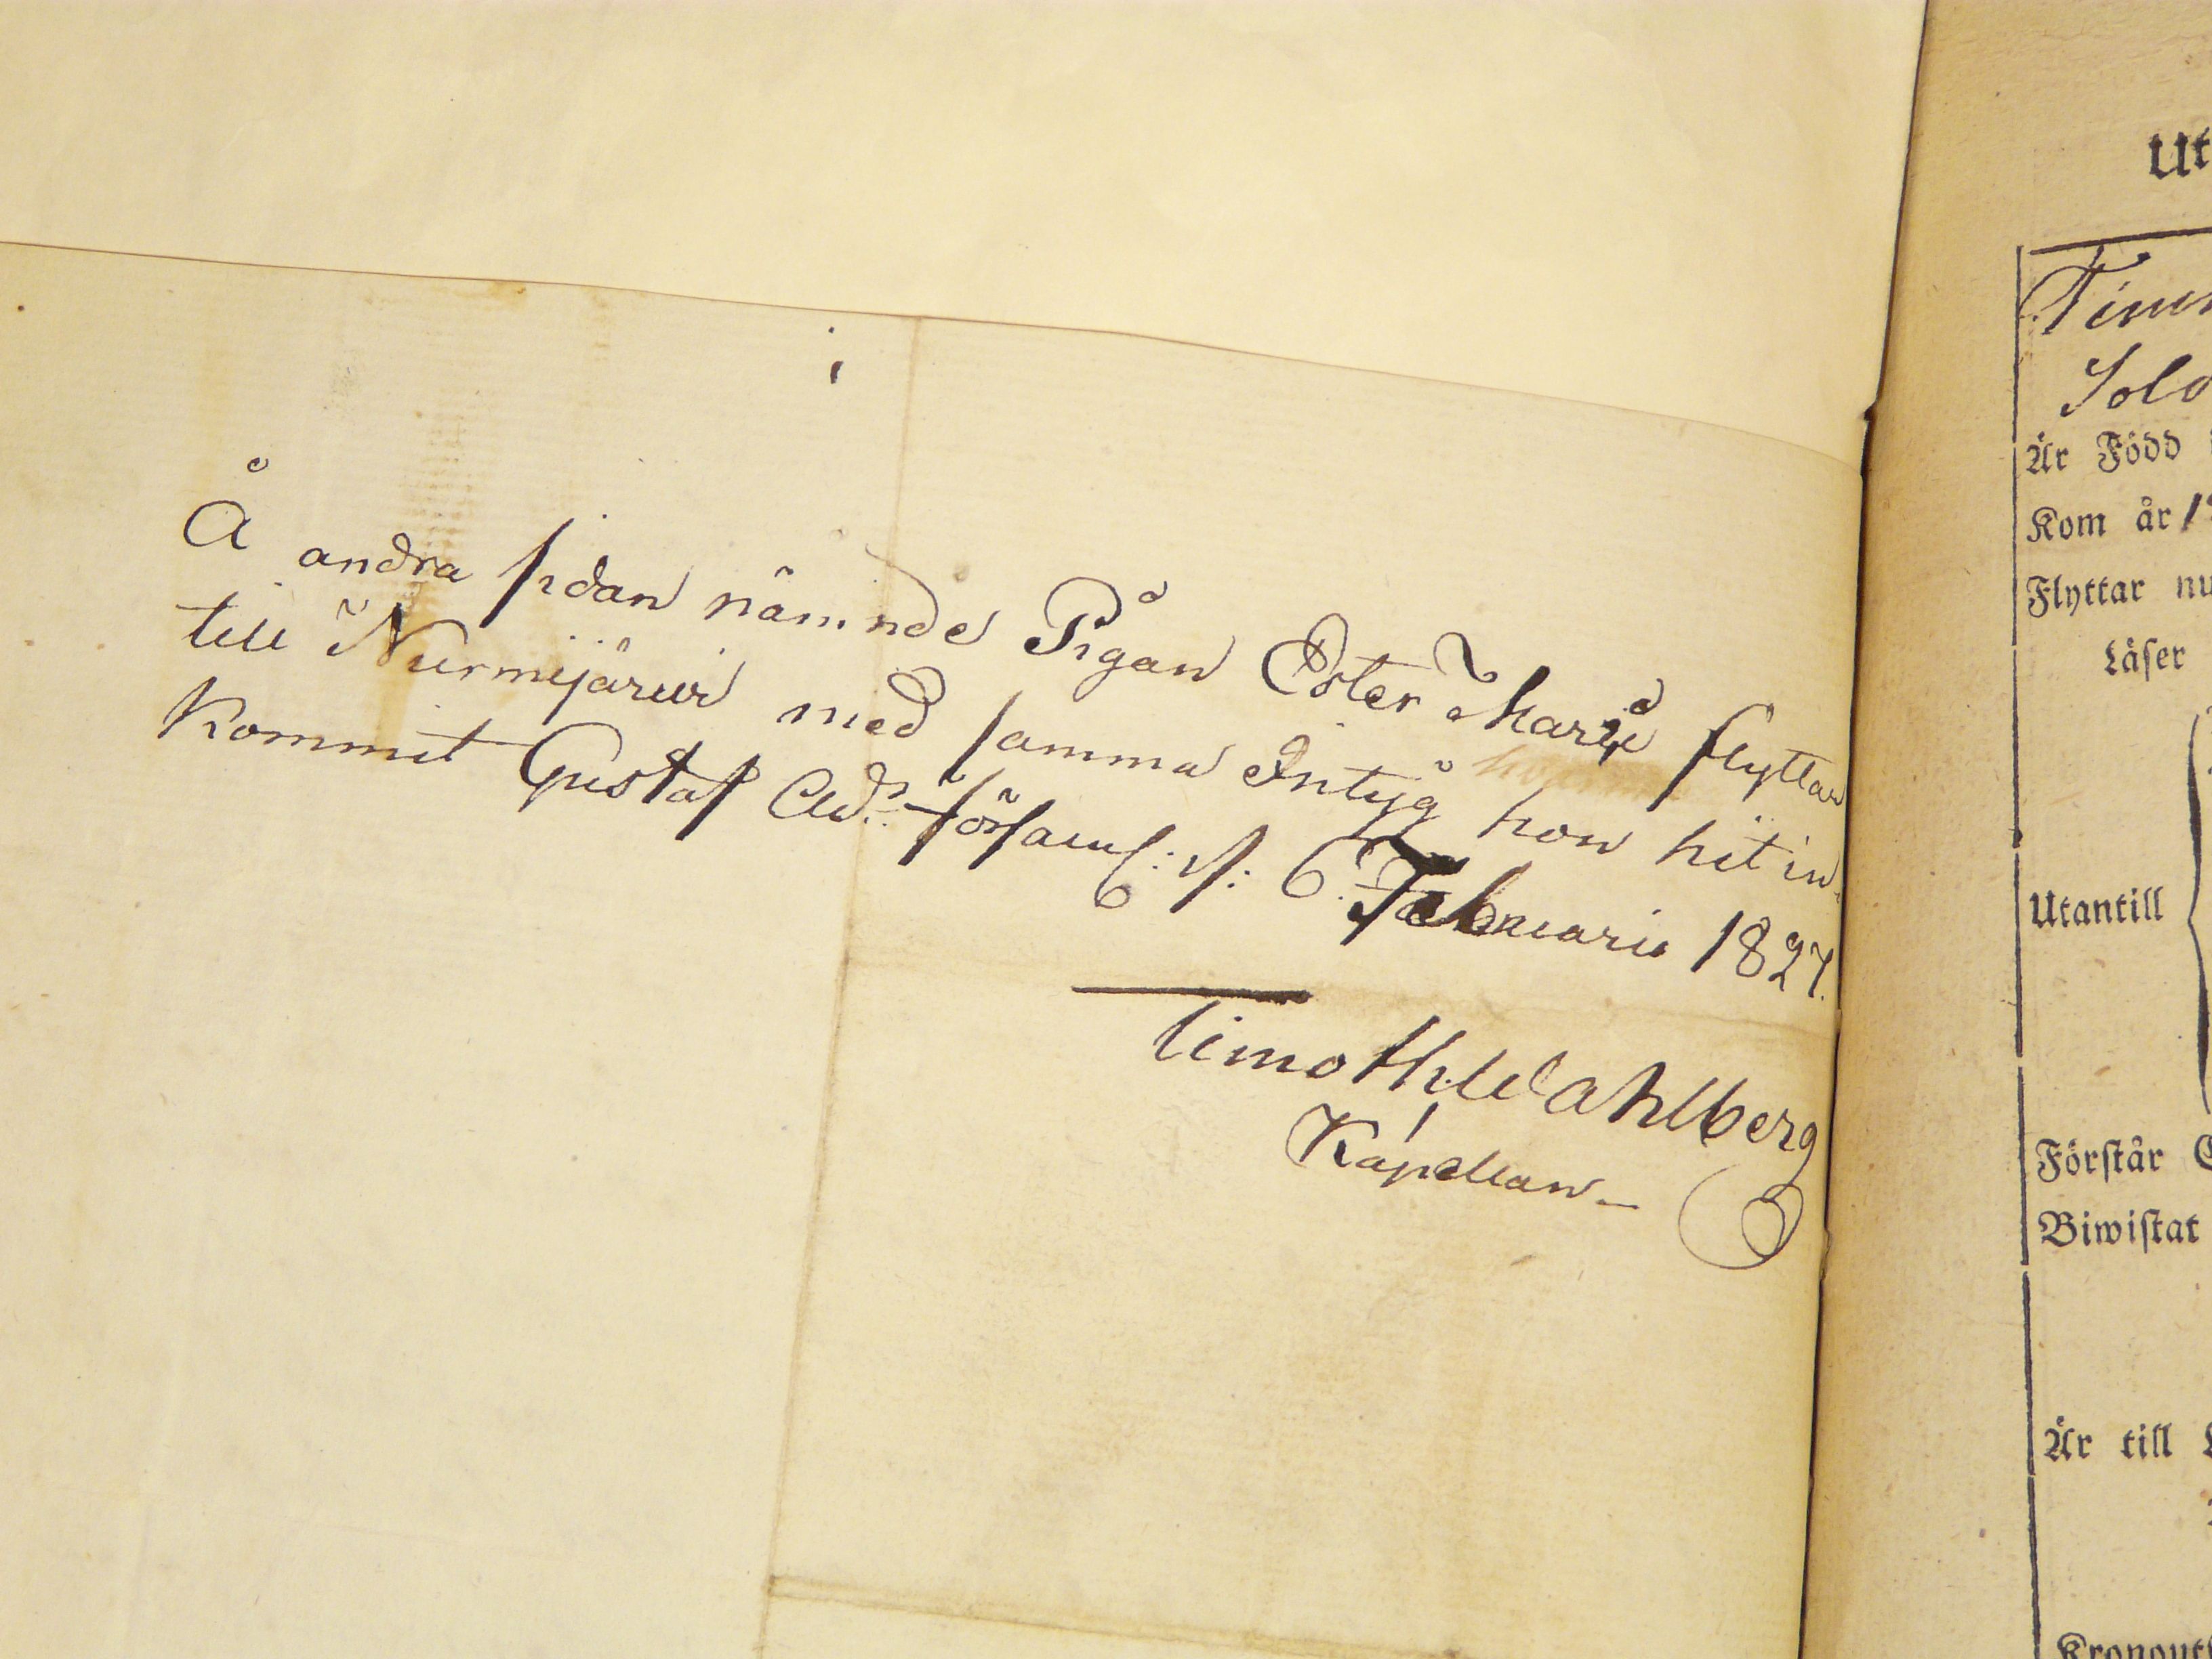 Å andra sidan nämnde Pigan Ester Marie flyttar
till Nurmijärwi med samma Intyg hon hit in-
kommit Gustaf Ad:s församl: d: 6. Februarii 1827.
Timoth. Wahlberg
Kapellan
Ut
Är Född
Kom år
Flyttar nu
Läser
Utantill
Förstår
Biwistat
Är till